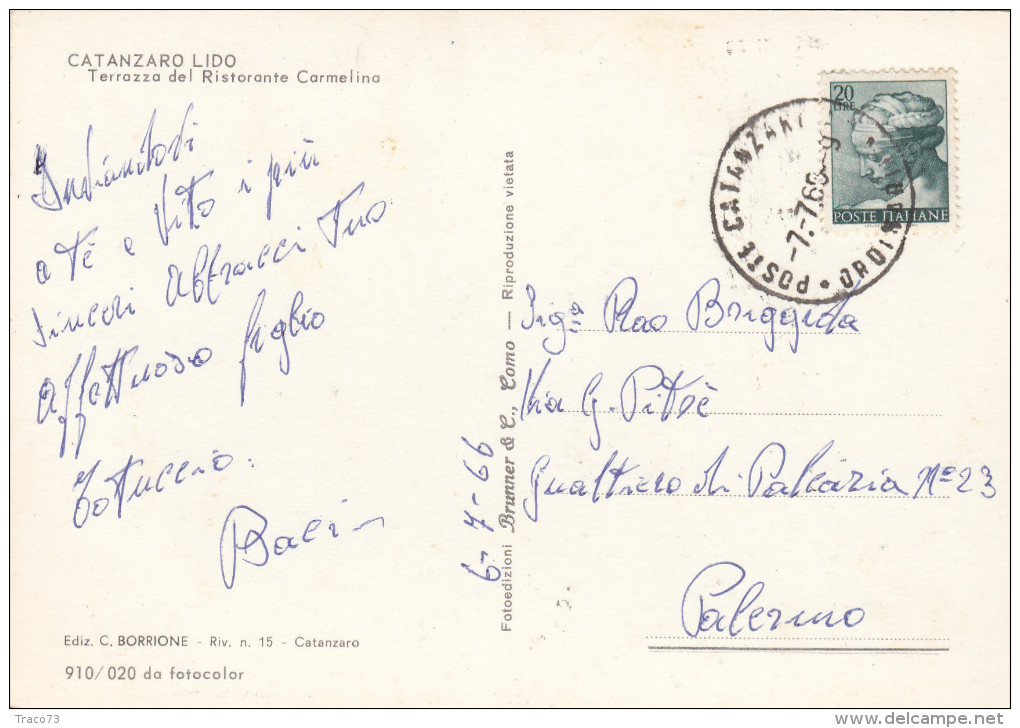 CATANZARO LIDO
Terrazza del Ristorante Carmelina
Inviandoti
a Te e Vito i più
sinceri Abbracci Tuo
affettuoso figlio
Totuccio.
Baci
Ediz. C. BORRIONE - Riv. n. 15 - Catanzaro
910/020 da fotocolor
Fotoedizioni Brunner & C., Como — Riproduzione vietata
6-7-66
20
LIRE
POSTE ITALIANE
POSTE CATANZAR
-7.-7.66
ORDIN
Sigra Rao Briggida
Via G. Pitrè
Gualtiero di Palcaria No 23
Palermo
Traco73
delcampe.net